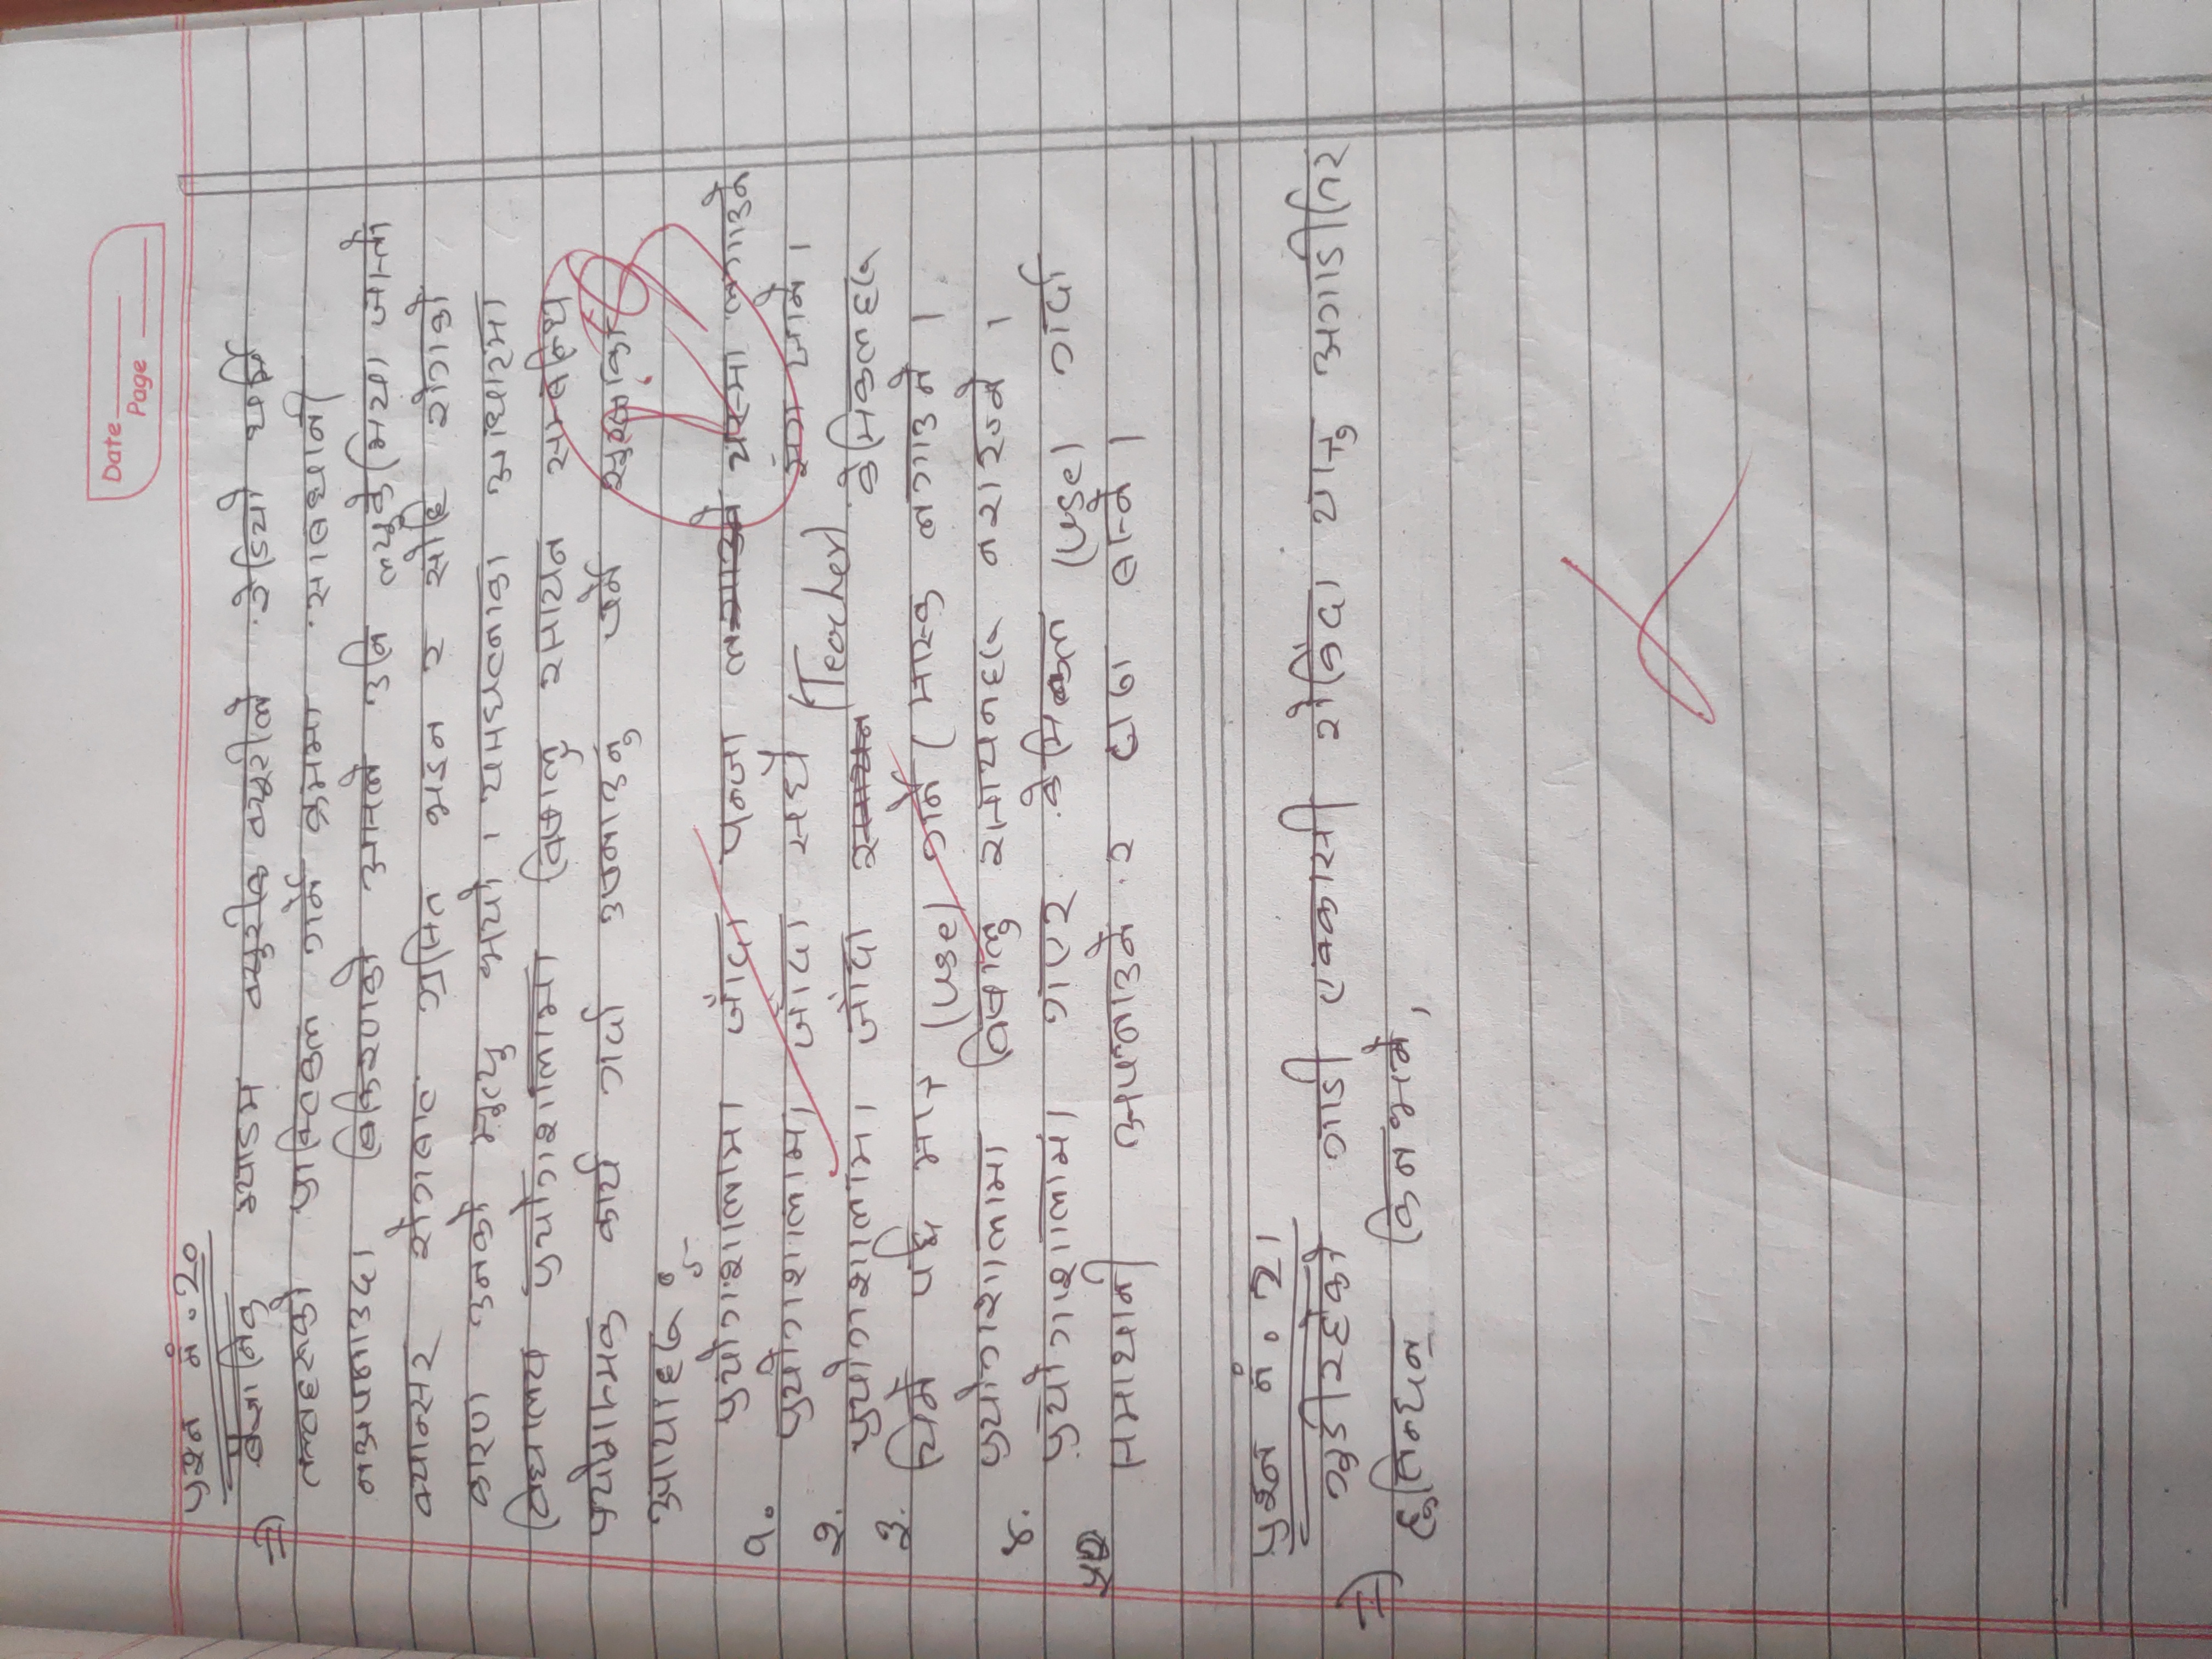 Date
Page
प्रश्न नं. 20
⇒ बैज्ञानिक म्याडम क्युरीले रेडियो धर्मि
तत्वहरूको प्राक्टिकल गर्ने क्रममा सावधानी
नअपनाउदा बिकिरणको असरले उनि ल्यूकेमिया जास्तो
क्यान्सर रोगबाट ग्रसित भइन र सोहि रोगको
कारण उनको मृत्यु भयो । यसघटनाका आधारमा
विद्यालय प्रयोगशालामा विषालु रसायन सम्बन्धि
प्रयोगात्मक कार्य गर्दा अपनाउनु पर्ने सुरक्षाका
उपायाहरू
१. प्रयोगशालामा जाँदा पन्जा चस्मा लगाउने
२. प्रयोगशालामा जाँदा सधै (Teacher) संग जाने ।
३. प्रयोगशालामा जाँदा केमिकलहरू
चिने पछि मात्र (use) गर्ने ( मास्क लगाउने ।
४. प्रयोगशालामा विषालु रसायनहरू नराख्ने ।
प्रयोगशालामा गएर केमिकल (use) गर्दा
समाधानी अपनाउने र टाढा बस्ने ।
प्रश्न नं. 21
⇒ गुडीरहेको गाडी एक्कासी रोकिँदा यात्रु अगाडीतिर
हुत्तिन्छन् किनभने,